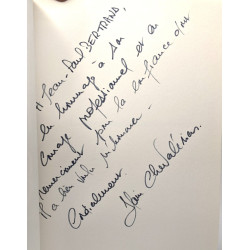 A Jean-Paul BERTRAND,
en hommage à son
courage professionnel et en
remerciement pour la confiance qu'il
a bien voulu
Cordialement.
Alain Chevalérias